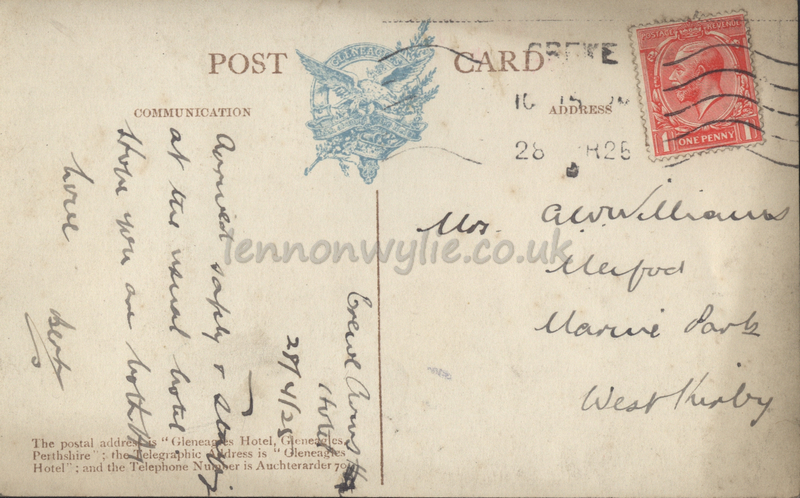 POST CARD
GLENEAGLES
COMMUNICATION
ADDRESS
CREWE
28 R25
POSTAGE REVENUE
1 ONE PENNY 1
Mrs. A.W. Williams
Meifod
Marine Park
West Kirby
Crewe Arms
Hotel
28/4/25
Arrived safely & staying
at the usual hotel.
Hope you are both
Love
Bert
The postal address is "Gleneagles Hotel, Gleneagles,
Perthshire"; the Telegraphic address is "Gleneagles
Hotel"; and the Telephone Number is Auchterarder 70
lennonwylie.co.uk